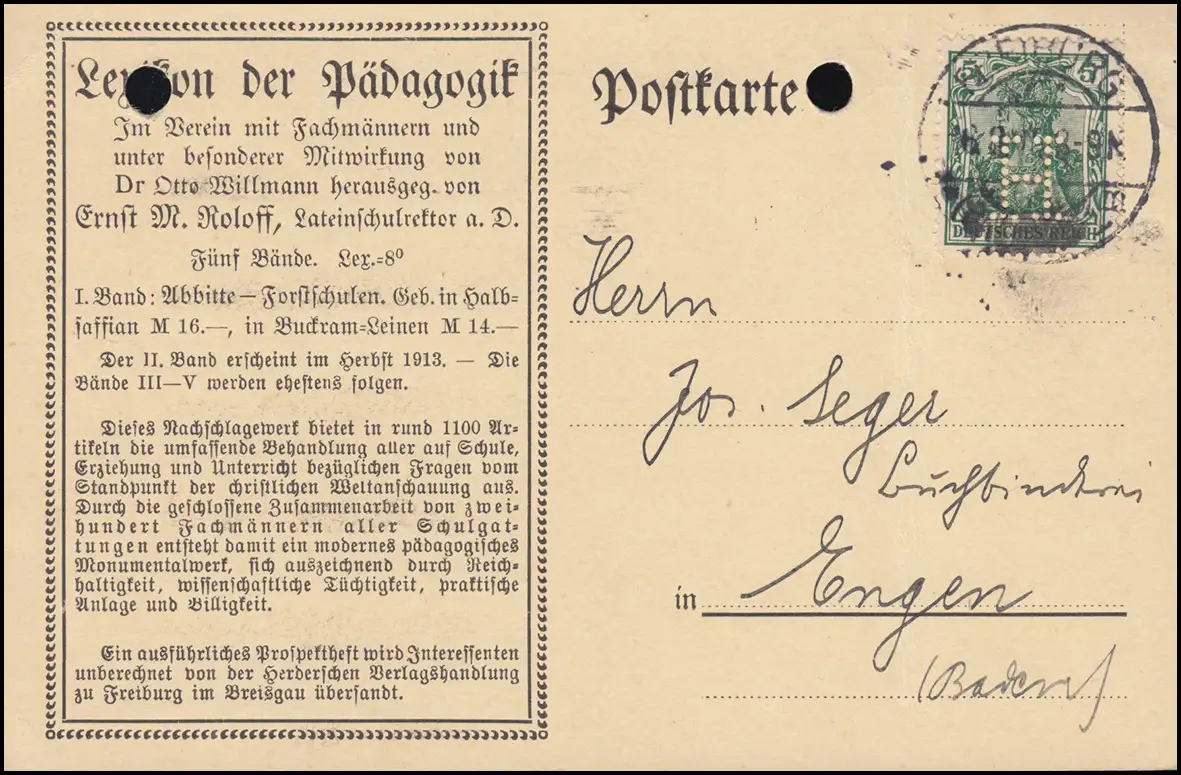 Lexikon der Pädagogik
Im Verein mit Fachmännern und
unter besonderer Mitwirkung von
Dr Otto Willmann herausgeg. von
Ernst M. Roloff, Lateinschulrektor a. D.
Fünf Bände. Lex.=8⁰
I. Band: Abbitte — Forstschulen. Geb. in Halb=
saffian M 16.—, in Buckram=Leinen M 14.—
Der II. Band erscheint im Herbst 1913. — Die
Bände III—V werden ehestens folgen.
Dieses Nachschlagewerk bietet in rund 1100 Ar=
tikeln die umfassende Behandlung aller auf Schule,
Erziehung und Unterricht bezüglichen Fragen vom
Standpunkt der christlichen Weltanschauung aus.
Durch die geschlossene Zusammenarbeit von zwei=
hundert Fachmännern aller Schulgat=
tungen entsteht damit ein modernes pädagogisches
Monumentalwerk, sich auszeichnend durch Reich=
haltigkeit, wissenschaftliche Tüchtigkeit, praktische
Anlage und Billigkeit.
Ein ausführliches Prospektheft wird Interessenten
unberechnet von der Herderschen Verlagshandlung
zu Freiburg im Breisgau übersandt.
Postkarte
5 5
DEUTSCHES REICH
H
Herrn
Jos. Seger
Buchbinderei
in Engen
(Baden)